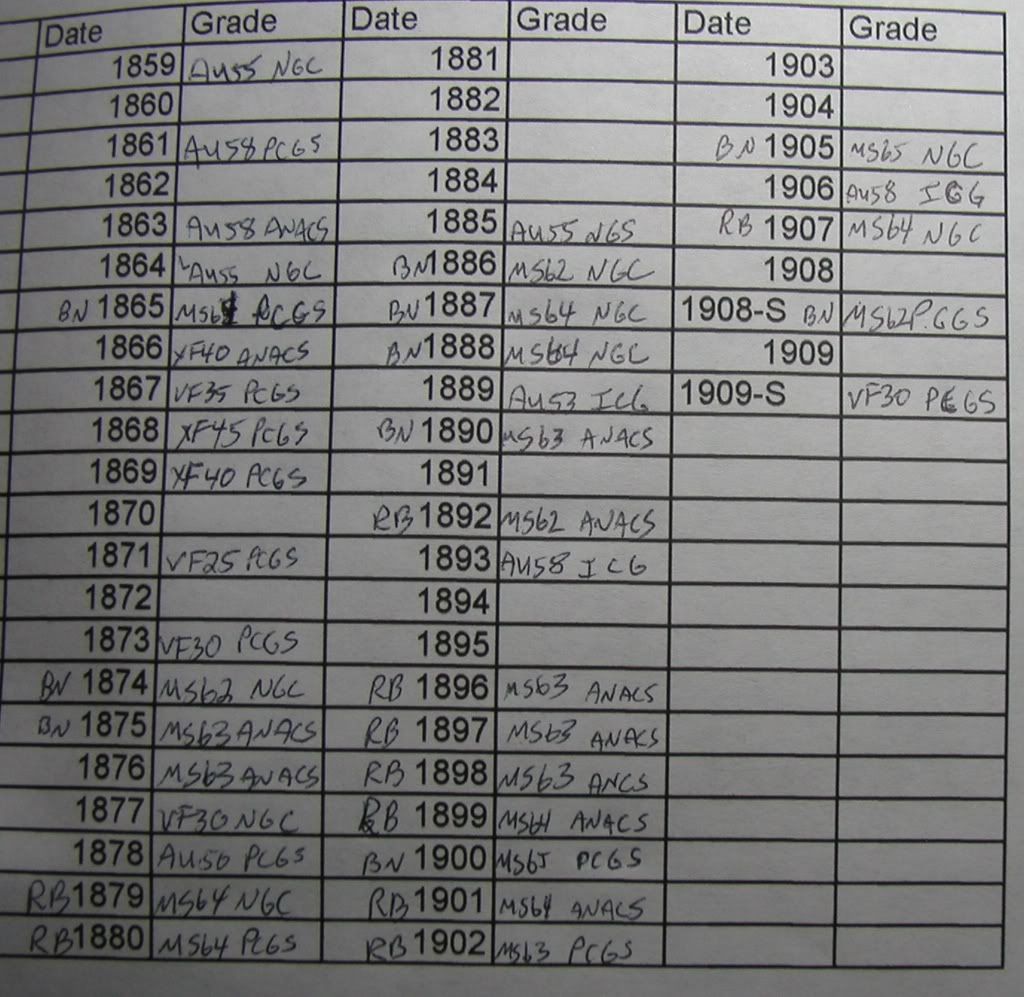 Date Grade Date Grade Date Grade
1859 AU55 NGC 1881 1903
1860 1882 1904
1861 AU58 PCGS 1883 BN 1905 MS65 NGC
1862 1884 1906 AU58 ICG
1863 AU58 ANACS 1885 AU55 NGS RB 1907 MS64 NGC
1864 L AU55 NGC BN 1886 MS62 NGC 1908
BN 1865 PCGS BN 1887 MS64 NGC 1908-S BN MS62 PCGS
1866 XF40 ANACS BN 1888 MS64 NGC 1909
1867 VF35 PCGS 1889 AU53 ICG 1909-S VF30 PCGS
1868 XF45 PCGS BN 1890 MS63 ANACS
1869 XF40 PCGS 1891
1870 RB 1892 MS62 ANACS
1871 VF25 PCGS 1893 AU58 ICG
1872 1894
1873 VF30 PCGS 1895
BN 1874 MS62 NGC RB 1896 MS63 ANACS
BN 1875 MS63 ANACS RB 1897 MS63 ANACS
1876 MS63 ANACS RB 1898 MS63 ANCS
1877 VF30 NGC RB 1899 MS64 ANACS
1878 AU50 PCGS BN 1900 PCGS
RB 1879 MS64 NGC RB 1901 MS64 ANACS
RB 1880 MS64 PCGS RB 1902 MS63 PCGS